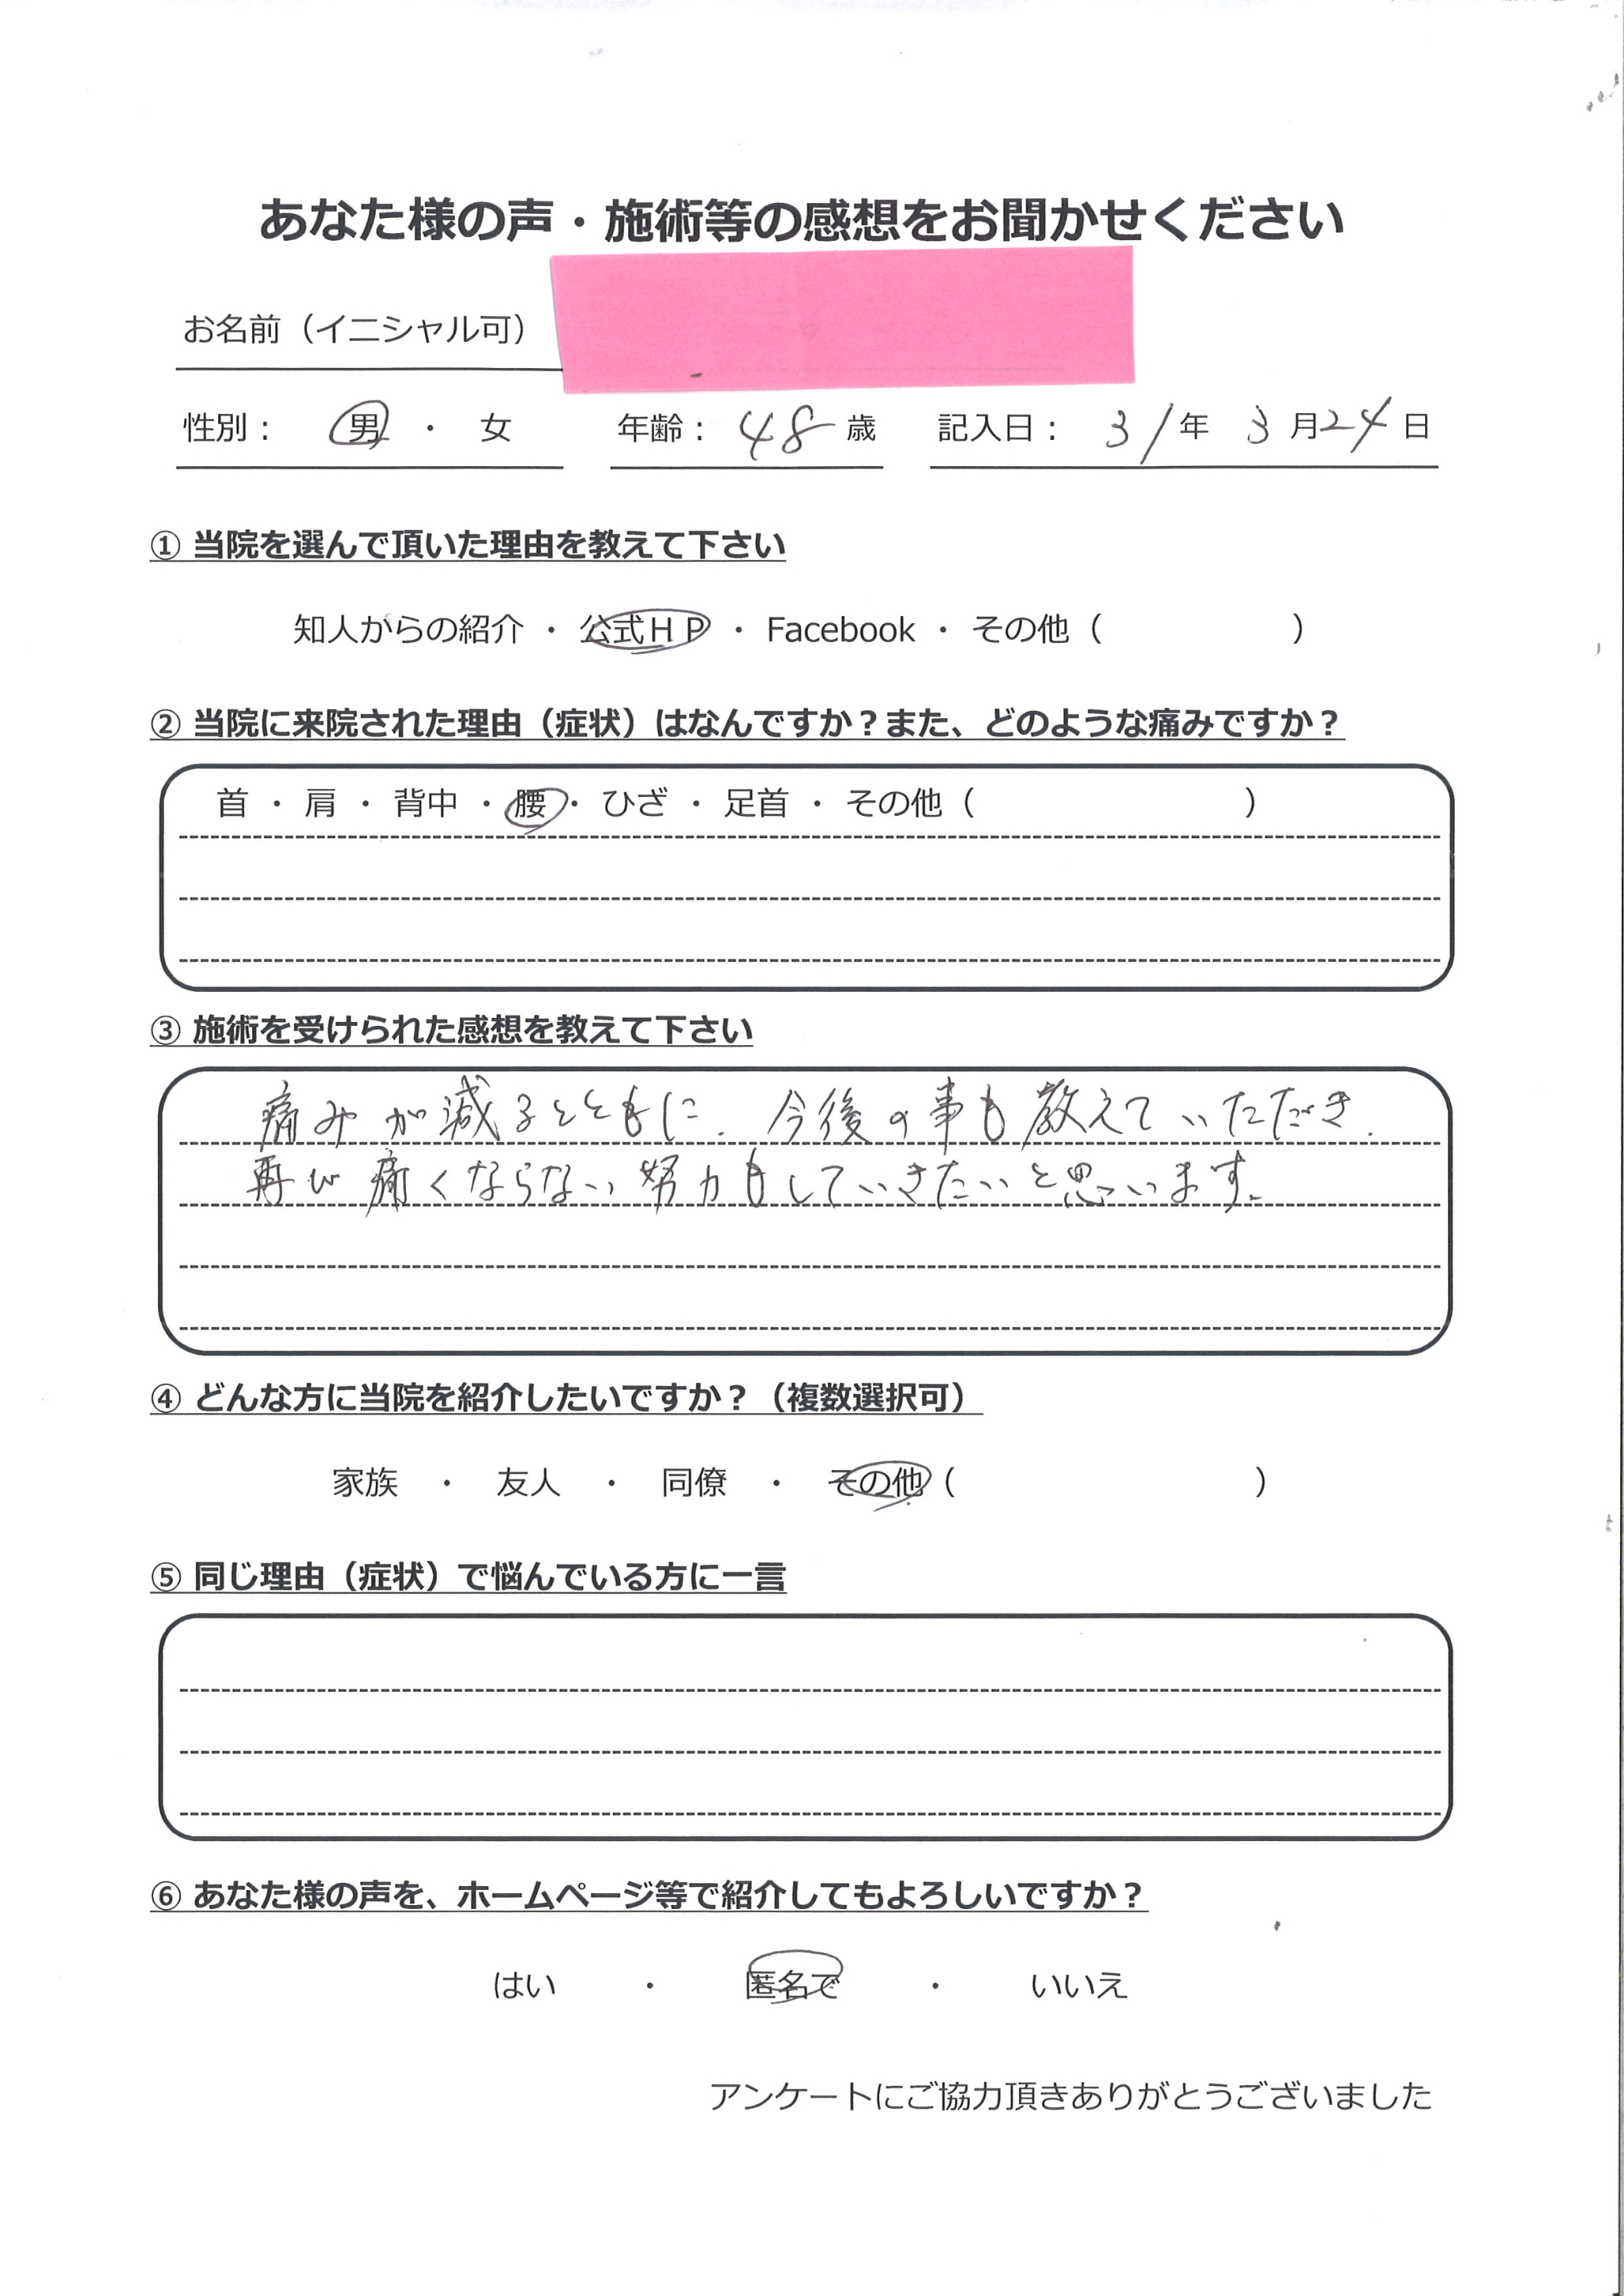 あなた様の声・施術等の感想をお聞かせください
お名前（イニシャル可）
性別： 男 ・ 女 年齢： 48 歳 記入日： 31年 3月24日
① 当院を選んで頂いた理由を教えて下さい
知人からの紹介 ・ 公式ＨＰ ・ Facebook ・ その他（ ）
② 当院に来院された理由（症状）はなんですか？また、どのような痛みですか？
首 ・ 肩 ・ 背中 ・ 腰 ・ ひざ ・ 足首 ・ その他（ ）
③ 施術を受けられた感想を教えて下さい
痛みが減るとともに、今後の事も教えていただき、
再び痛くならない努力もしていきたいと思います。
④ どんな方に当院を紹介したいですか？（複数選択可）
家族 ・ 友人 ・ 同僚 ・ その他（ ）
⑤ 同じ理由（症状）で悩んでいる方に一言
⑥ あなた様の声を、ホームページ等で紹介してもよろしいですか？
はい ・ 匿名で ・ いいえ
アンケートにご協力頂きありがとうございました